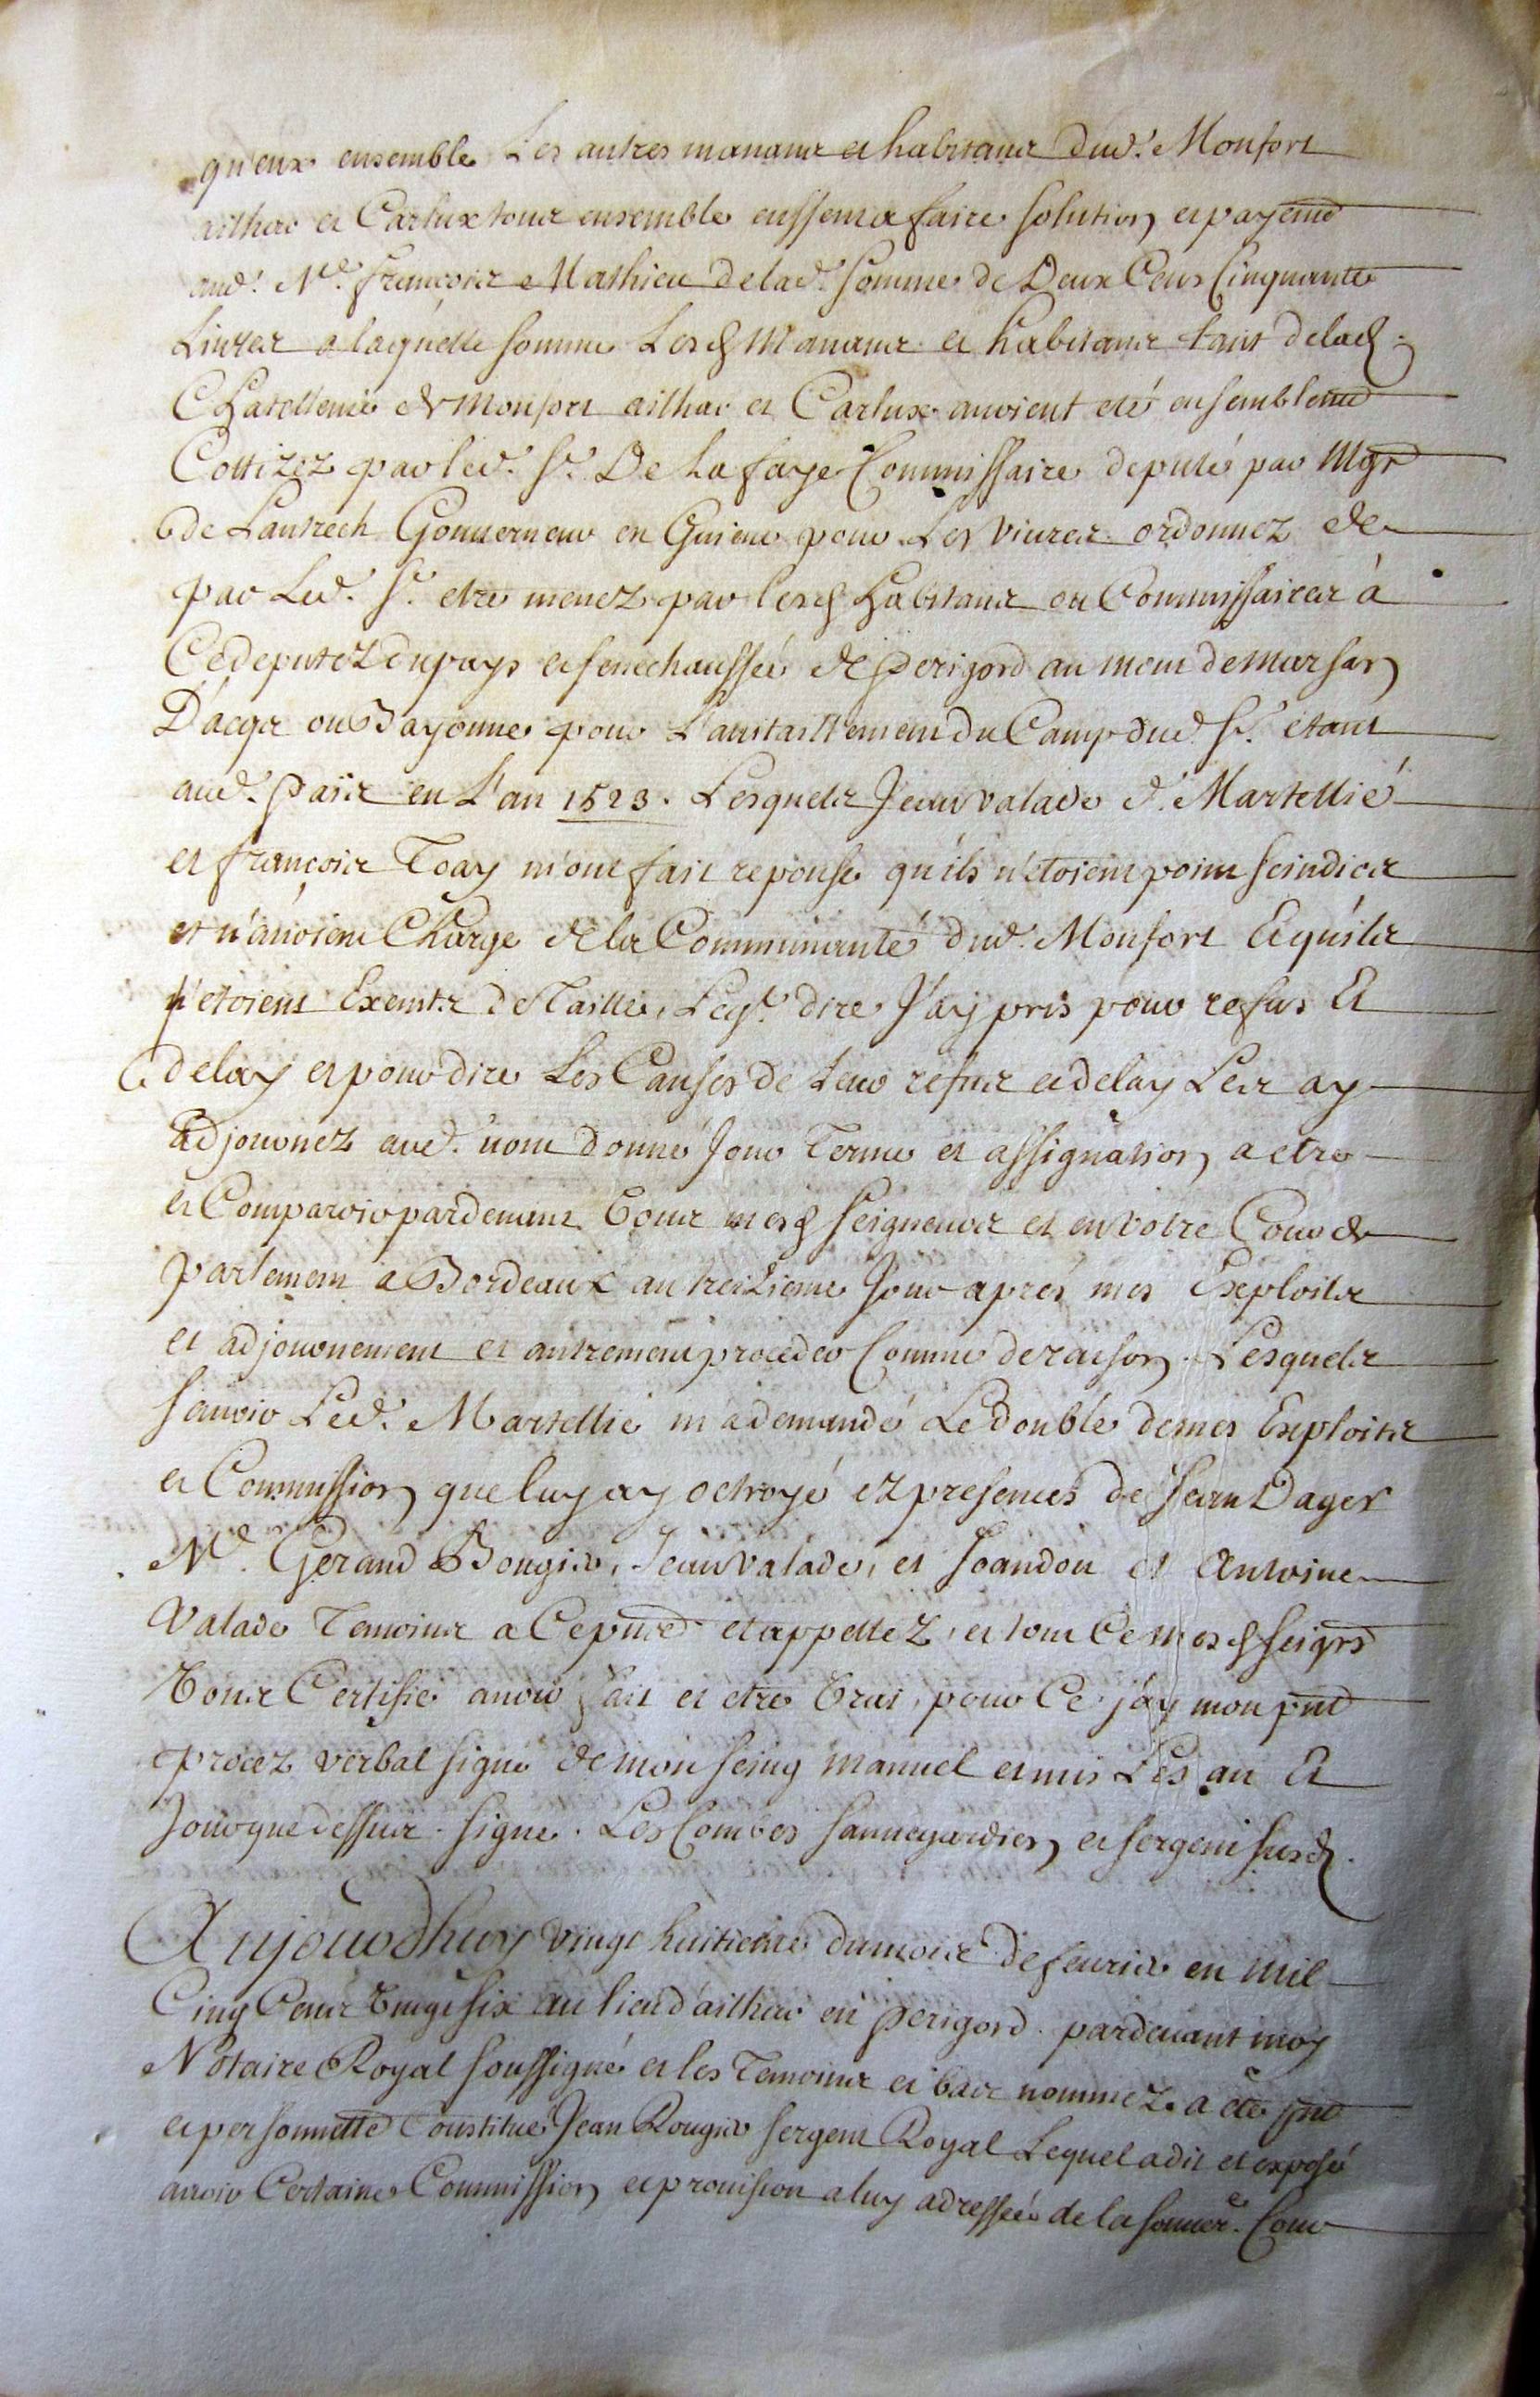 qu'eux ensemble Les autres manans et habitans dud. Monfort
ailhac et Carlux tous ensemble eussent a faire solution et payemt
aud. Me. françois Mathieu de lad. Somme de Deux Cens Cinquante
Livres a laquelle somme Lesd Manans et habitans tant de lad.
Chatellenie de Monfort ailhac et Carlux avoient eté ensemblemt
Cottizez par led. Sr. De La faye Commissaire deputé par Mgr
de Lautrech Gouverneur en Guiene pour Les vivres ordonnez de
par Led. Sr. etre menez par lesd habitans ou Commissaires à
Ce deputez du pays et senechaussée de perigord au mont de marsan
D'acqs ou Bayonne pour L'avitaillement du Camp dud. Sr. etant
aud. païs en L'an 1523. Lesquels Jean valade d. Martellié
et françois Toay m'ont fait reponse qu'ils n'etoient point scindics
et n'avoient Charge de la Communauté dud. Monfort Et qu'ils
n'etoient Exemts de Taille, Leql. dire J'ay pris pour refus Et
delay et pour dire Les Causes de Leur refus et delay Les ay
adjournez aud. nom donné Jour Terme et assignation a etre
et Comparoir pardevant Vous mesd Seigneurs et en votre Cour de
parlement a Bordeaux au treizieme Jour aprés mes Exploits
et adjournement et autrement proceder Comme de raison. Lesquels
sauvoir Led. Martellié m'a demandé Le double de mes Exploits
et Commission que luy ay octroyé ez presences de Jean Dager
Me. Geraud Bougier, Jean valade, et Joandou et Antoine
Valade Temoins a Ce pnt et appellez, et tout Ce mesd seigrs
Vous Certifie avoir fait et etre Vrai, pour Ce j'ay mon pnt
procez verbal signé de mon seing manuel et mis Les an Et
Jour que dessus. Signé. Les Combes Sauvegardien et sergent susd.
Aujourdhuy vingt huitieme du mois de fevrier en mil
Cinq Cens Vingt six au lieu d'ailhac en perigord. pardevant moy
Notaire Royal soussigné et les Temoins et bas nommez a eté pnt
et personnellt Constitué Jean Rougier sergent Royal Lequel a dit et exposé
avoir Certaine Commission et provision a luy adressée de la Cour